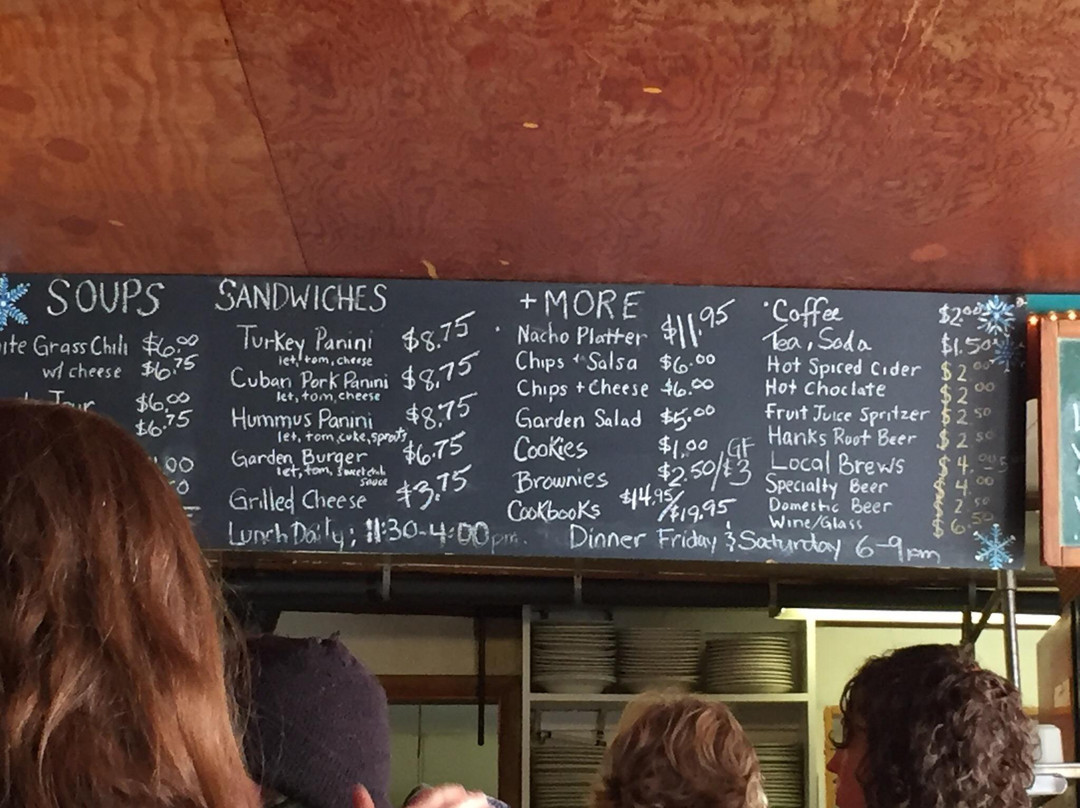 SOUPS
Grass Chili $6.00
w/ cheese $6.75
$6.00
$6.75
SANDWICHES
Turkey Panini $8.75
let, tom, cheese
Cuban Pork Panini $8.75
let, tom, cheese
Hummus Panini $8.75
let, tom, cuke, sprouts
Garden Burger $6.75
let, tom, sweet chili
sauce
Grilled Cheese $3.75
+ MORE
Nacho Platter $11.95
Chips + Salsa $6.00
Chips + Cheese $6.00
Garden Salad $5.00
Cookies $1.00
Brownies $2.50/GF $3
Cookbooks $14.95/$19.95
Coffee $2.00
Tea, Soda $1.50
Hot Spiced Cider $2.00
Hot Choclate $2.00
Fruit Juice Spritzer $2.50
Hanks Root Beer $2.50
Local Brews $4.00
Specialty Beer $4.00
Domestic Beer $2.50
Wine/Glass $6.50
Lunch Daily; 11:30-4:00pm. Dinner Friday & Saturday 6-9pm